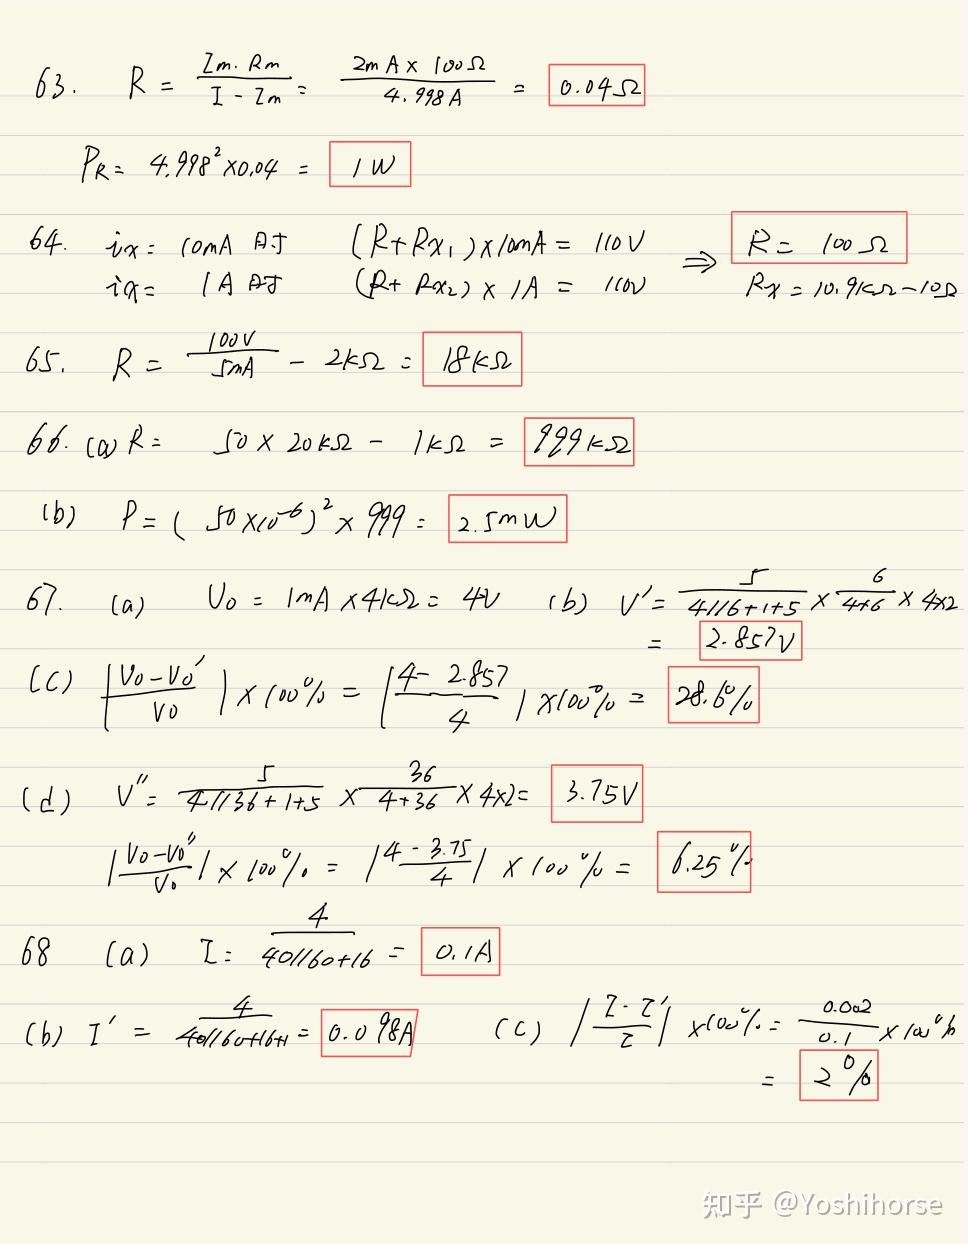 63. R = Im·Rm / I - Im = 2mA × 100Ω / 4.998A = 0.04Ω
PR = 4.998² × 0.04 = 1W
64. ix = 10mA 时 (R+Rx₁)×10mA = 110V ⇒ R = 100Ω
ix = 1A 时 (R+Rx₂)×1A = 110V Rx = 10.9kΩ-10Ω
65. R = 100V / 5mA - 2kΩ = 18kΩ
66. (a) R = 50 × 20kΩ - 1kΩ = 999kΩ
(b) P = (50×10⁻⁶)² × 999 = 2.5mW
67. (a) Vo = 1mA × 4kΩ = 4V (b) V' = 5 / 4//6+1+5 × 6 / 4+6 × 4×2
= 2.857V
(c) |Vo-Vo' / Vo| × 100% = |4-2.857 / 4| × 100% = 28.6%
(d) V'' = 5 / 4//36+1+5 × 36 / 4+36 × 4×2 = 3.75V
|Vo-Vo'' / Vo| × 100% = |4-3.75 / 4| × 100% = 6.25%
68 (a) I = 4 / 40//60+16 = 0.1A
(b) I' = 4 / 40//60+16+1 = 0.098A (c) |I-I' / I| × 100% = 0.002 / 0.1 × 100%
= 2%
知乎 @Yoshihorse